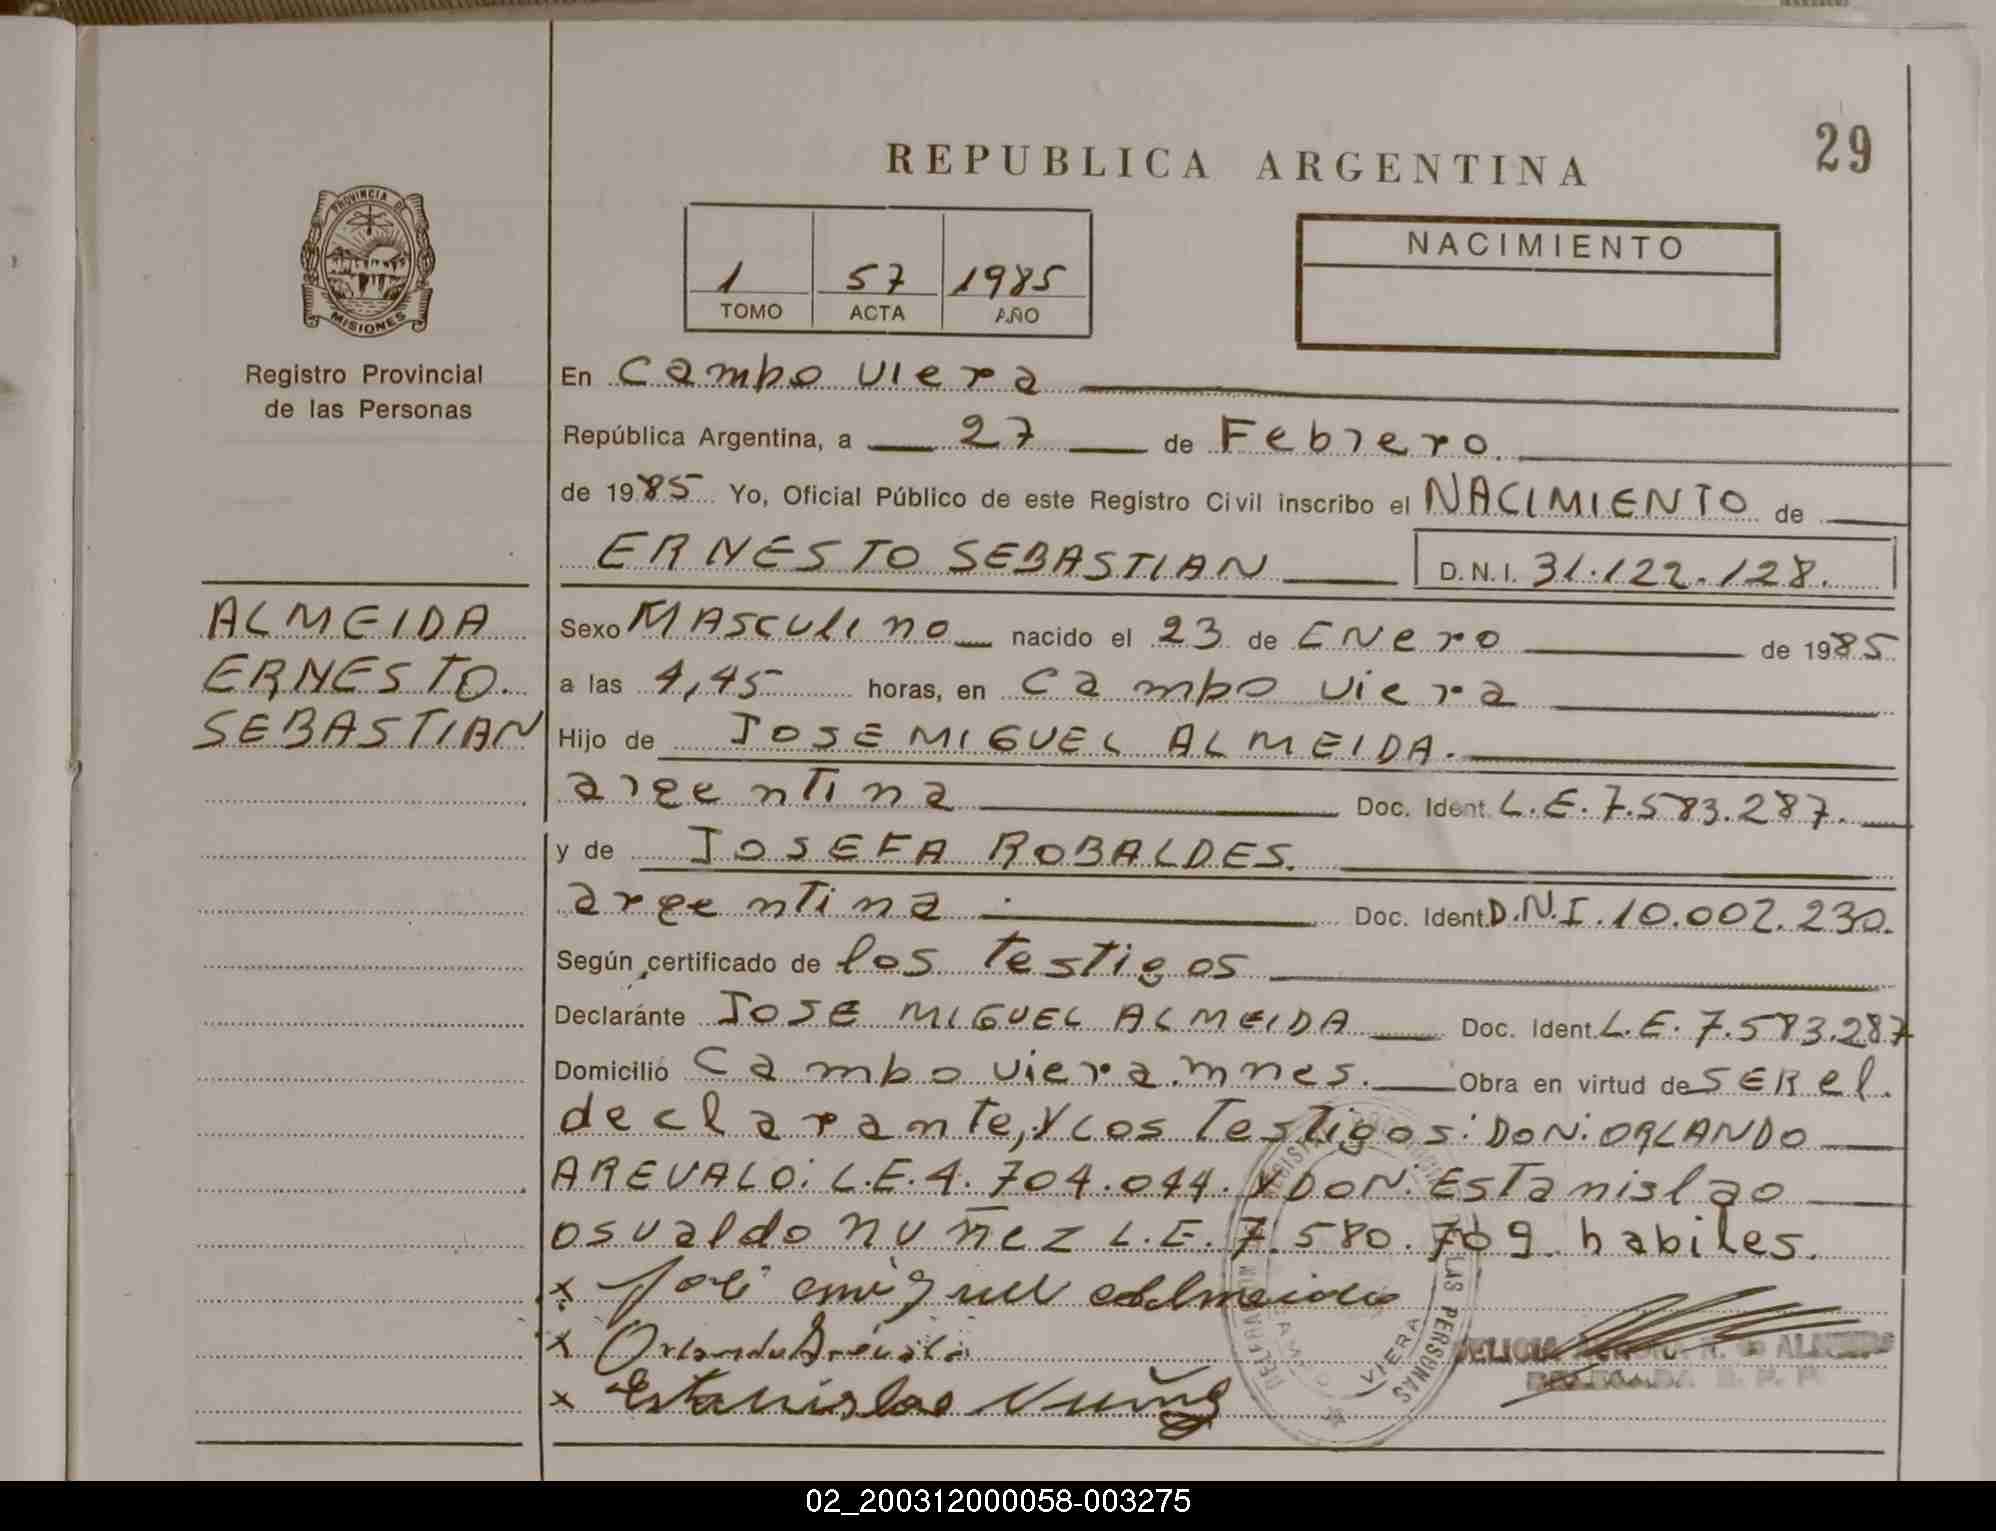 REPUBLICA ARGENTINA
29
PROVINCIA DE
MISIONES
Registro Provincial
de las Personas
1 57 1985
TOMO ACTA AÑO
NACIMIENTO
En Cambo viera
República Argentina, a 27 de Febrero.
de 1985 Yo, Oficial Público de este Registro Civil inscribo el NACIMIENTO de
ERNESTO SEBASTIAN D.N.I. 31.122.128.
ALMEIDA
ERNESTO.
SEBASTIAN
Sexo MAsculino nacido el 23 de ENero de 1985
a las 4,45 horas, en Cambo viera
Hijo de JOSE MIGUEL ALMEIDA.
argentina Doc. Ident. L.E. 7.583.287.
y de JOSEFA ROBALDES.
argentina Doc. Ident. D.N.I. 10.002.230.
Según certificado de los testigos
Declaránte JOSE MIGUEL ALMEIDA Doc. Ident. L.E. 7.583.287
Domicilio Cambo viera.mnes. Obra en virtud de SER el.
declarante, Y LOS Testigos: DON: ORLANDO
AREVALO: L.E. 4.704.044. Y DON. EStanislao
osvaldo nuñez L.E. 7.580.709. habiles.
x José Miguel Almeida
x Orlando Arévalo
x Estanislao Nuñez
LAS PERSONAS
VIERA
02_200312000058-003275